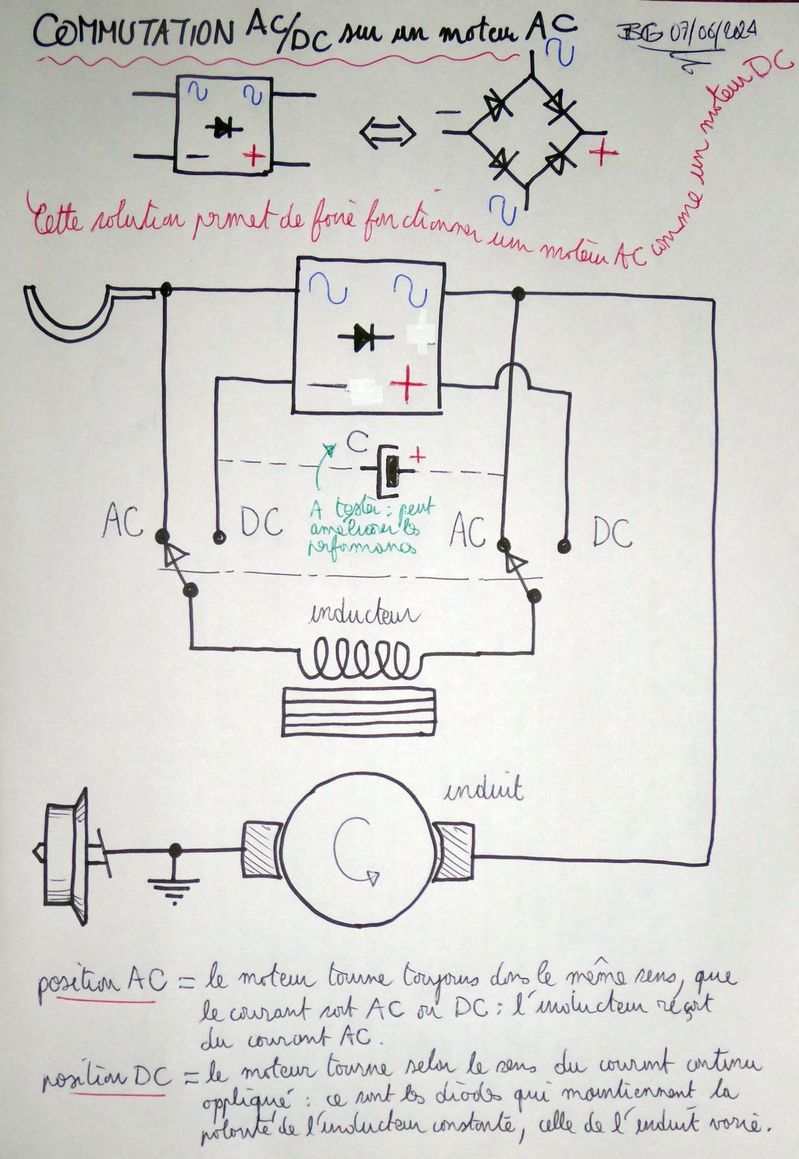 COMMUTATION AC/DC sur un moteur AC
JBG 07/06/2024
− +
− +
Cette solution prmet de faire fonctionner un moteur AC comme un moteur DC
− +
C +
A tester : peut
améliorer les
performances
AC DC AC DC
inducteur
induit
position AC = le moteur tourne toujours dans le même sens, que
le courant soit AC ou DC ; l'inducteur reçoit
du courant AC.
position DC = le moteur tourne selon le sens du courant continu
appliqué : ce sont les diodes qui maintiennent la
polarité de l'inducteur constante, celle de l'induit varie.